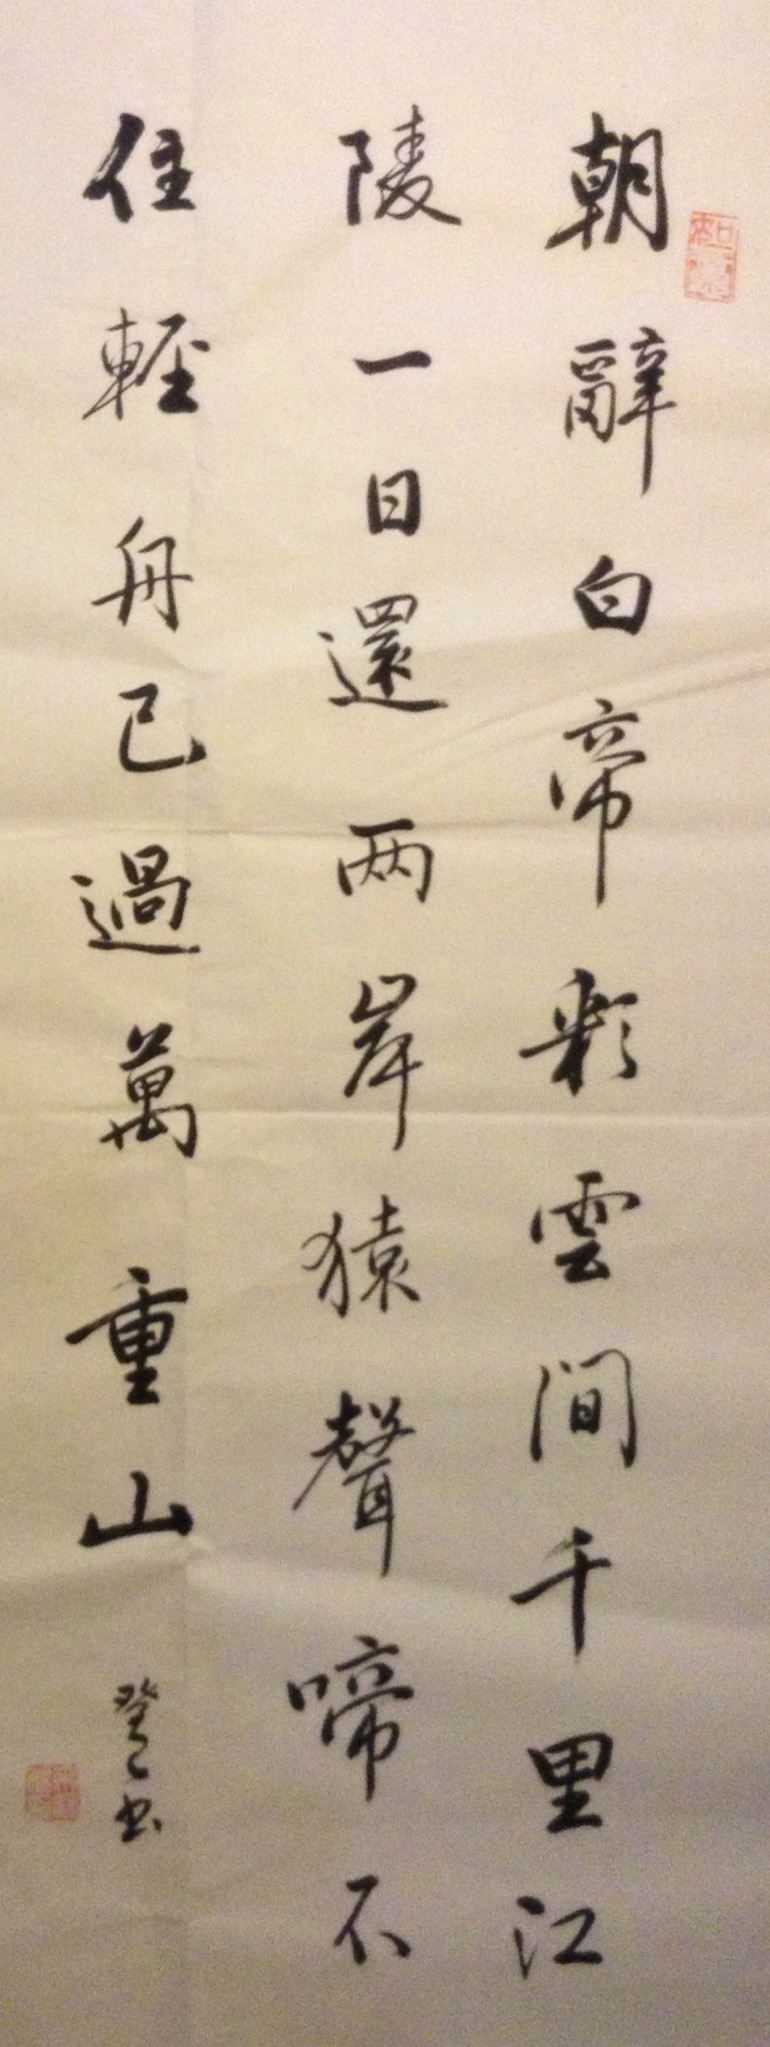 朝辭白帝彩雲間千里江
陵一日還两岸猿聲啼不
住輕舟已過萬重山
書